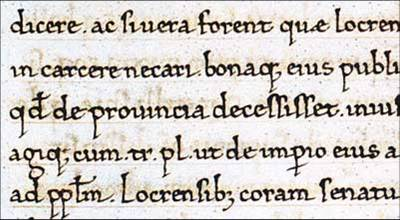 dicere. ac si uera forent quæ locren
in carcere necari. bonaq; eius publi
qđ de prouincia decessisset. inius
agiq; cum. tr. pl. ut de imꝑio eius a
ad pplm̄. Locrensib; coram senatu